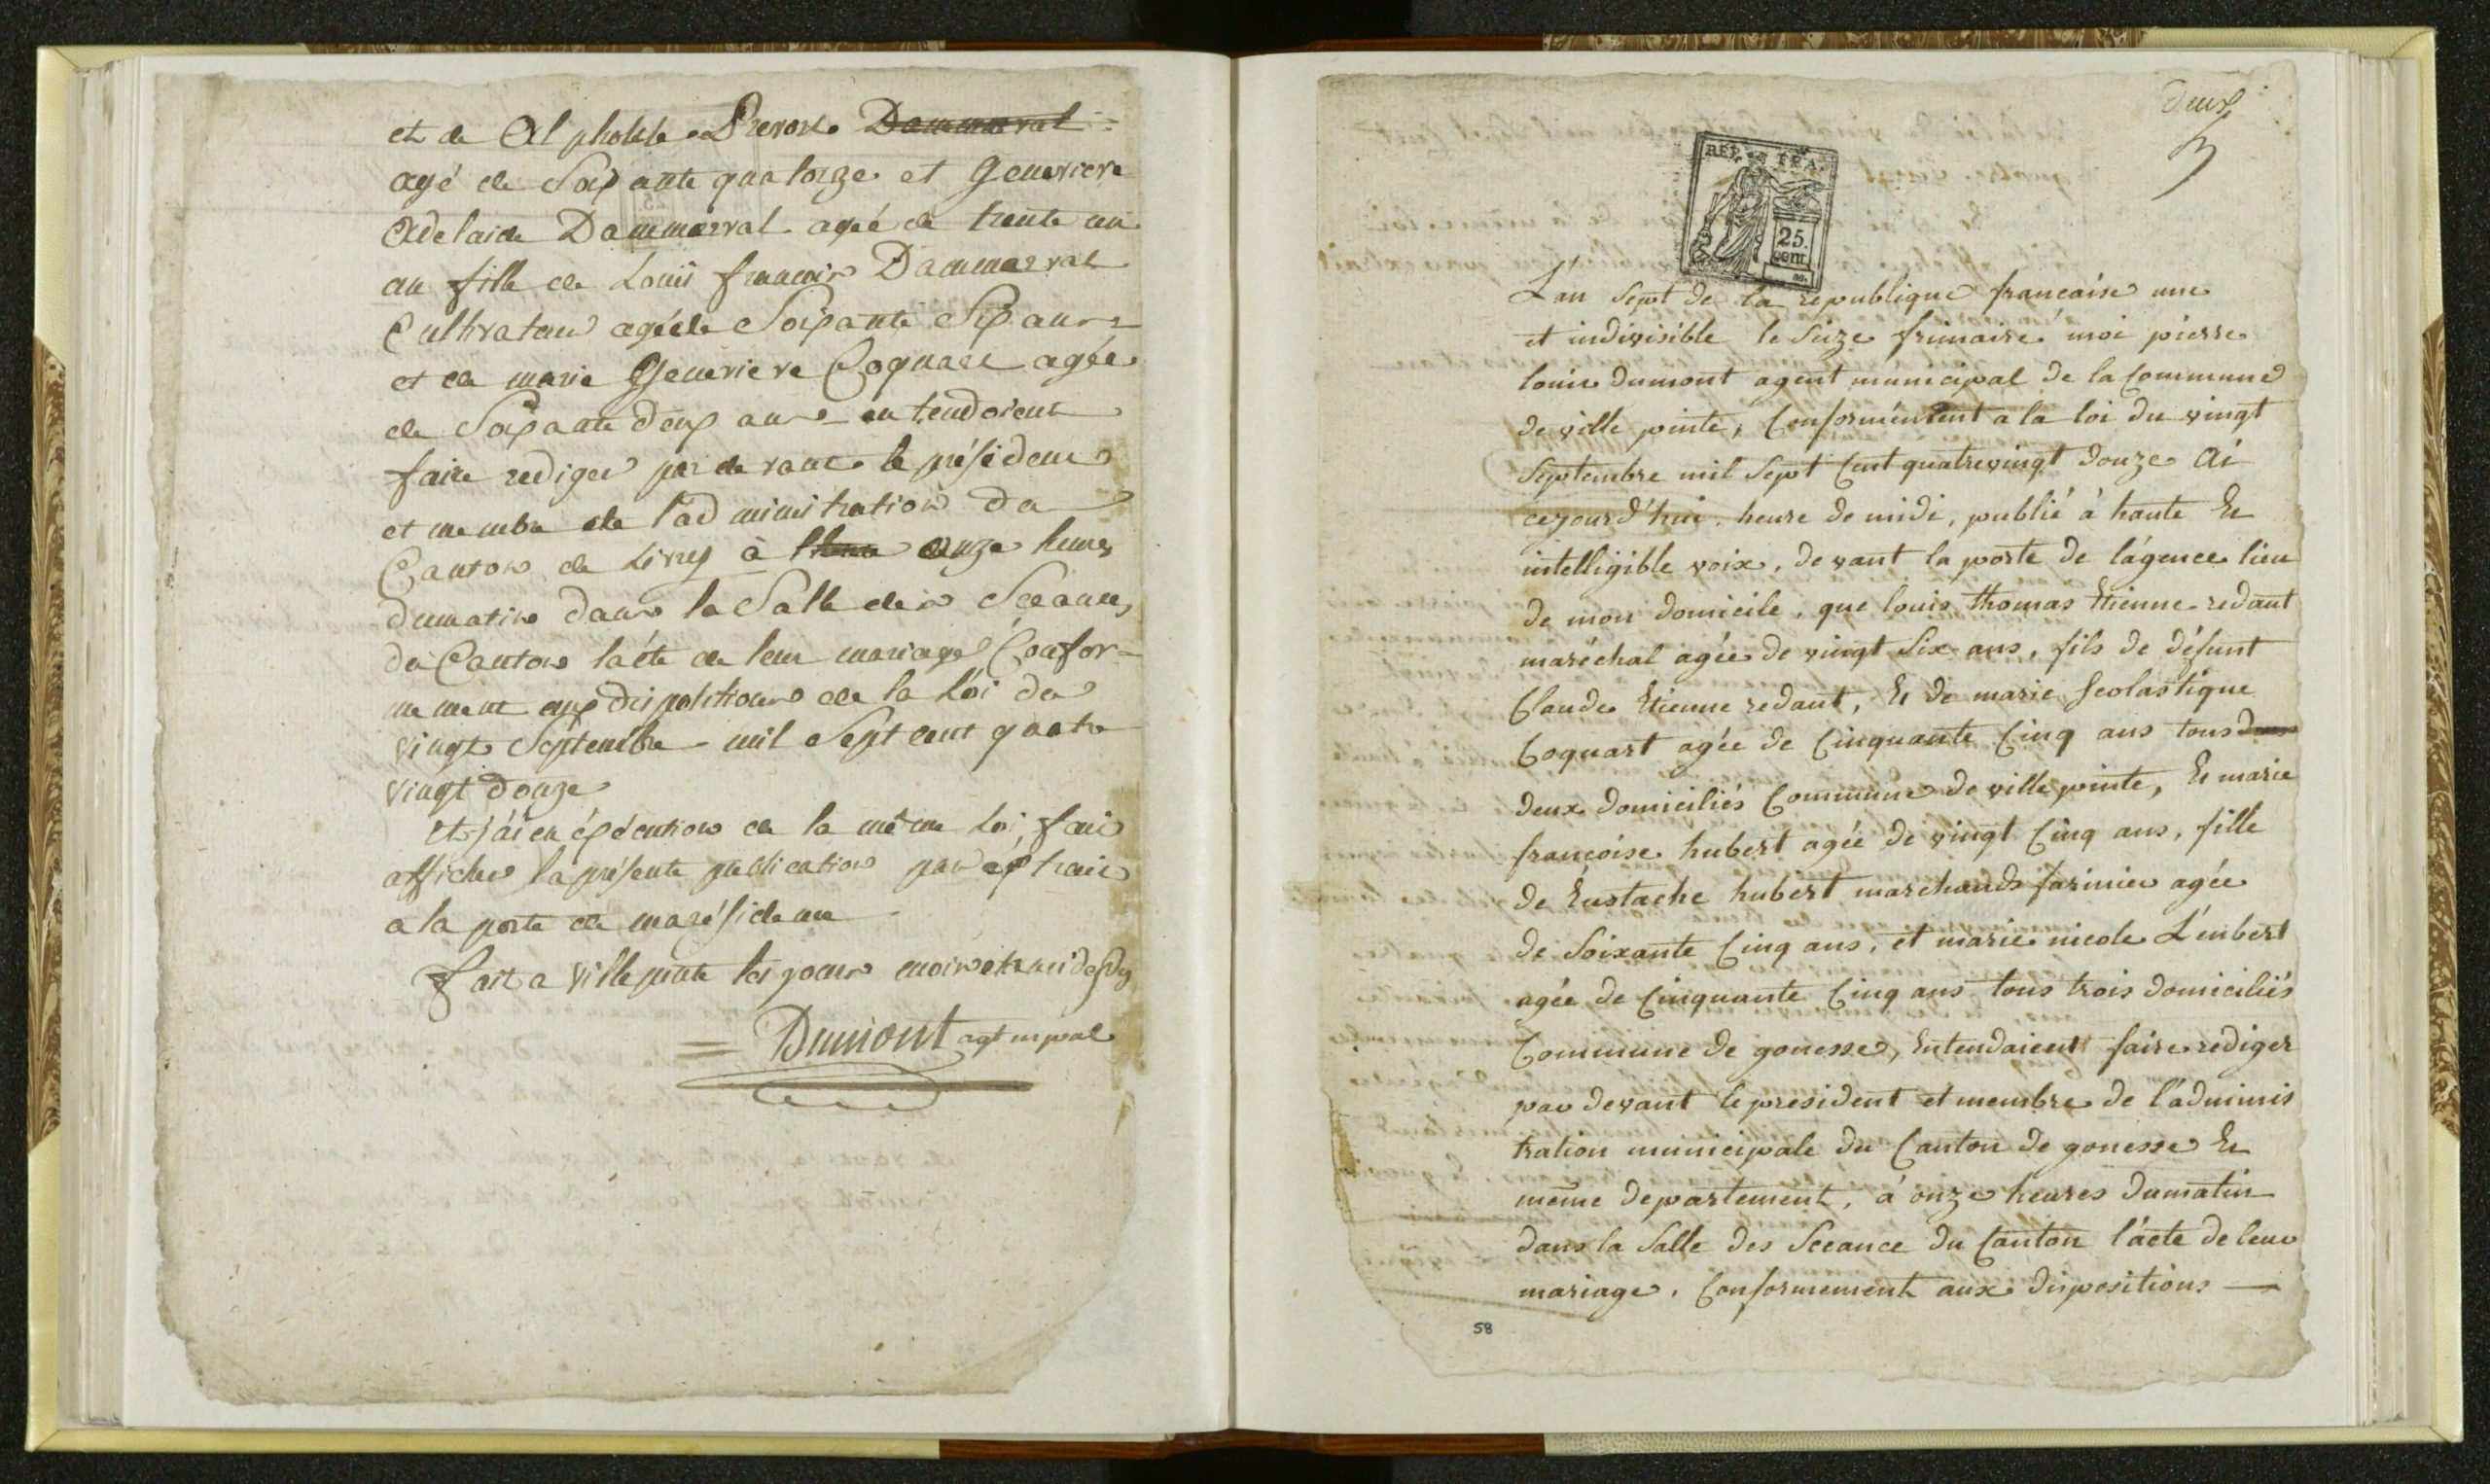 et de Alphokse Prevost Dammarval
agé de Soixante quatorze et Genevieve
Adelaide Dammarval agé de trente un
an fille de Louis francois Dammarval
Cultivateur agé de Soixante Six ans
et de marie Genevieve Coquart agée
de Soixante deux ans entendoient
faire rediger par devant le président
et membre de l'administration du
Canton de Livry à lheure onze heures
dumatin dans la Salle des Sceances
du Canton lacte de leur mariage Confor-
mement aux dispositions de la Loi du
vingt Septembre mil Sept cent quatre
vingt douze
et j'ai en éxécution de la même Loi fait
afficher la présente publication par extrait
a la porte de ma résidence
fait a villepinte les jour mois et an
Dumont agt mpal
deux
REP. FRA.
25.
cent.
L'an Sept de la republique francaise une
et indivisible le Seize frimaire moi pierre
louis dumont agent municipal de la Commune
de ville pinte, Conformément a la loi du vingt
Septembre mil Sept Cent quatrevingt douze Ai
cejourd'hui, heure de midi, publié à haute Et
intelligible voix, devant la porte de l'agence lieu
de mon domicile, que louis thomas Etienne redant
maréchal agée de vingt Six ans, fils de défunt
Claude Etienne redant, Et de marie Scolastique
Coquart agée de Cinquante Cinq ans tous
deux domiciliés Commune de ville pinte, Et marie
francoise hubert agée de vingt Cinq ans, fille
de Eustache hubert marchands farinier agée
de Soixante Cinq ans, et marie nicole L'enbert
agée de Cinquante Cinq ans tous trois domiciliés
Commune de gonesse, Entendaient faire rediger
par devant le president et membre de l'adminis
tration municipale du Canton de gonesse Et
même departement, à onze heures dumatin
dans la Salle des Sceance du Canton l'acte de leur
mariage, Conformement aux dispositions —
58